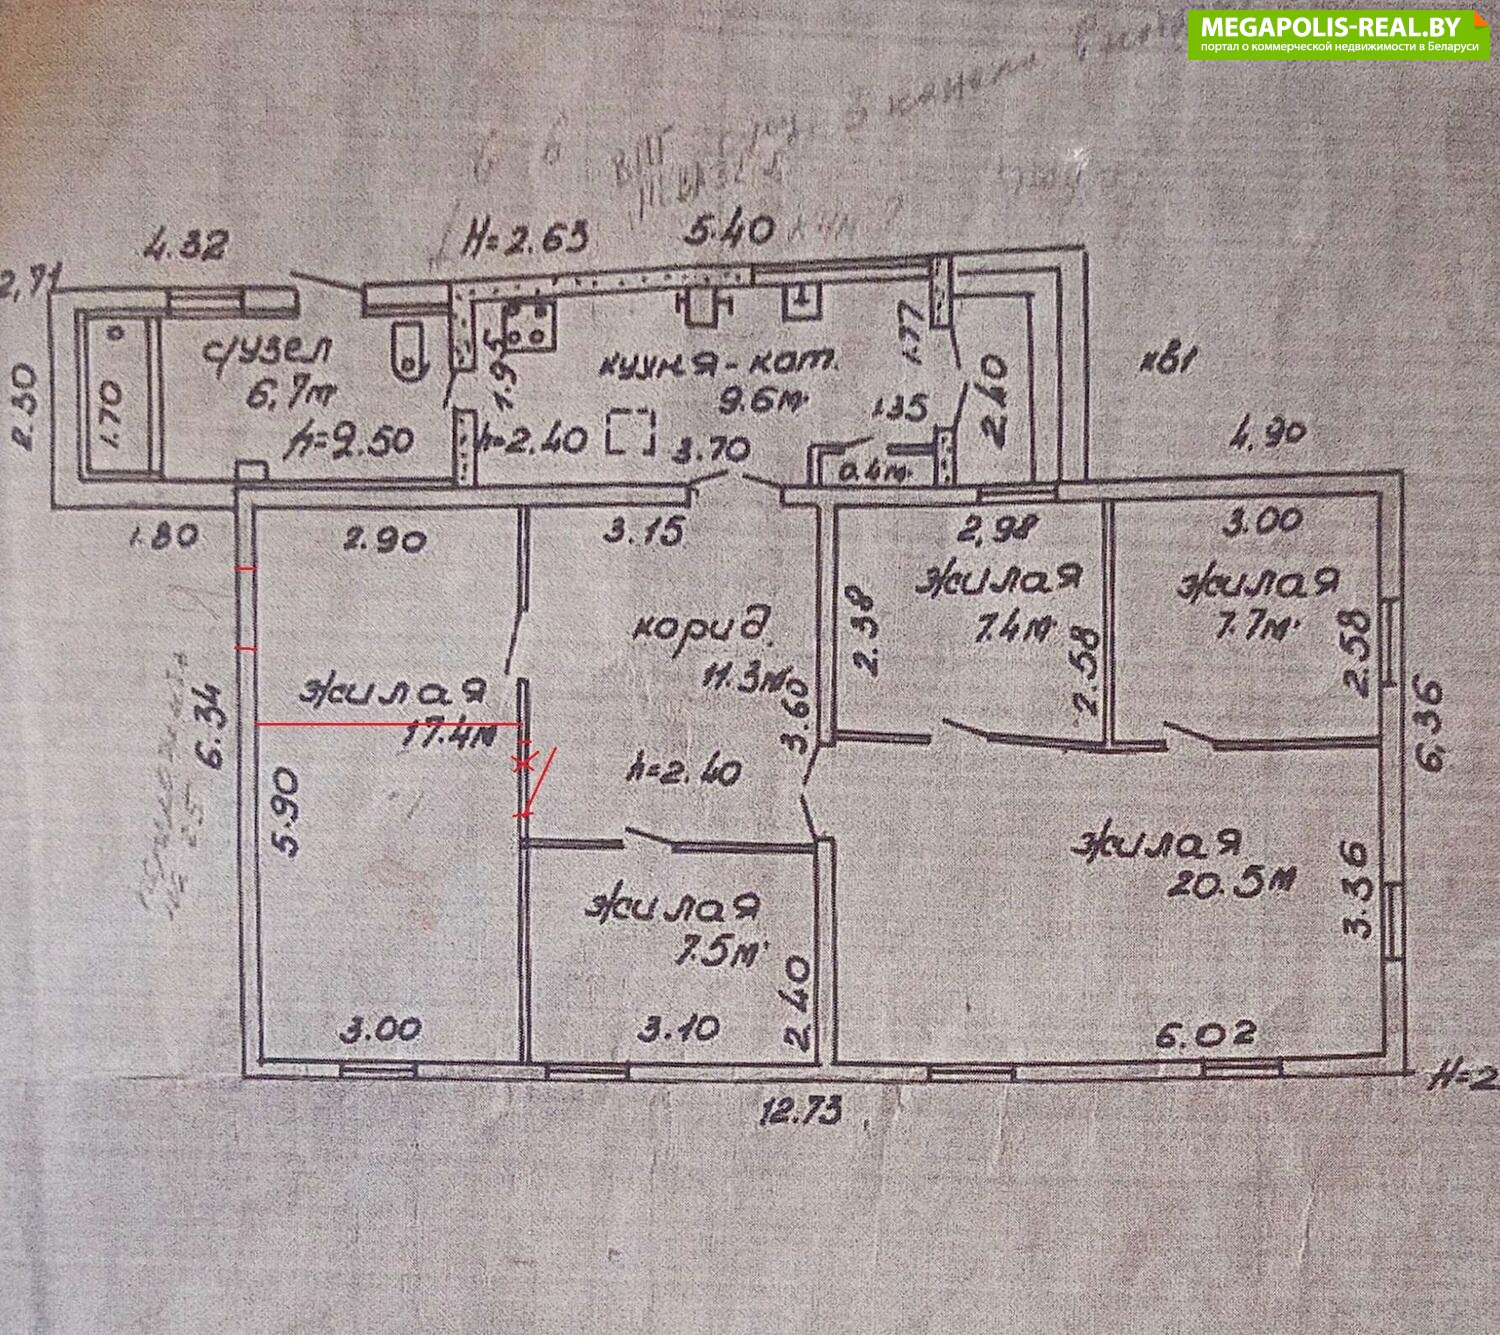 MEGAPOLIS-REAL.BY
портал о коммерческой недвижимости в Беларуси
4.32
H=2.63
5.40
2,71
2.30
1.70
с/узел
6,7м
h=2.50
1.95
кухня-кот.
9.6м
1.77
h=2.40
3.70
1.35
0.4м
2.40
кв1
4.90
1.80
2.90
3.15
2,98
3.00
жилая
7.4м
жилая
7.7м
2.38
2.58
2.58
корид.
11.3м
3.60
h=2.40
жилая
17.4м
6.34
5.90
3.00
жилая
7.5м
2.40
3.10
жилая
20.5м
3.36
6,36
6.02
12.73
H=2